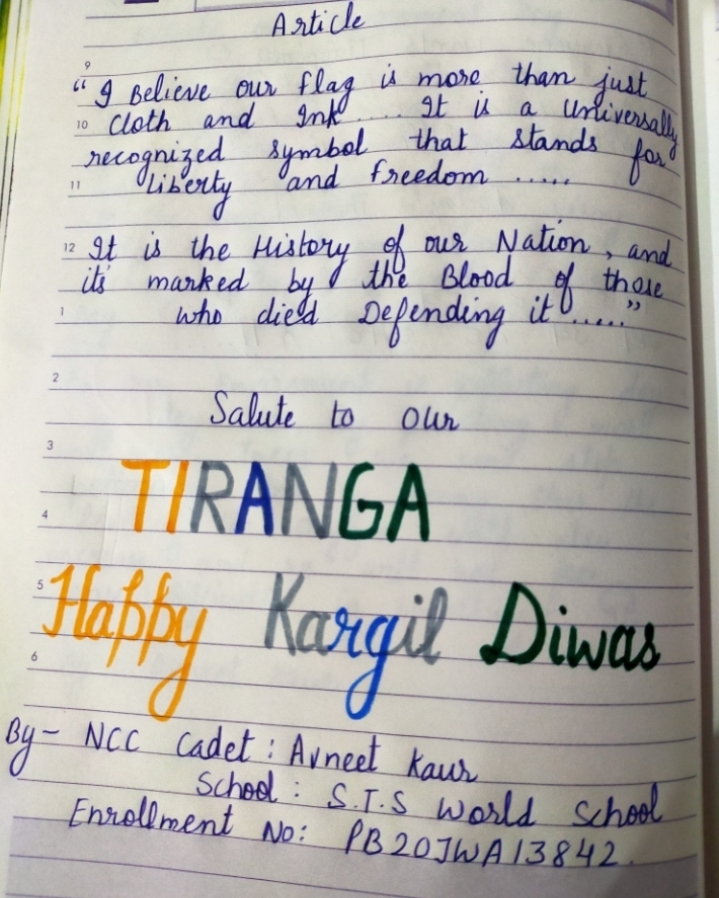 Article
9
"I Believe our flag is more than just
10 Cloth and Ink .... It is a universally
recognized symbol that stands for
11 liberty and freedom .....
12 It is the History of our Nation, and
its marked by the Blood of those
1 who died Defending it ....."
2
Salute to our
3
TIRANGA
4
5 Happy Kargil Diwas
6
By- NCC Cadet : Avneet Kaur
School : S.T.S World School
Enrollment No: PB20JWA13842.